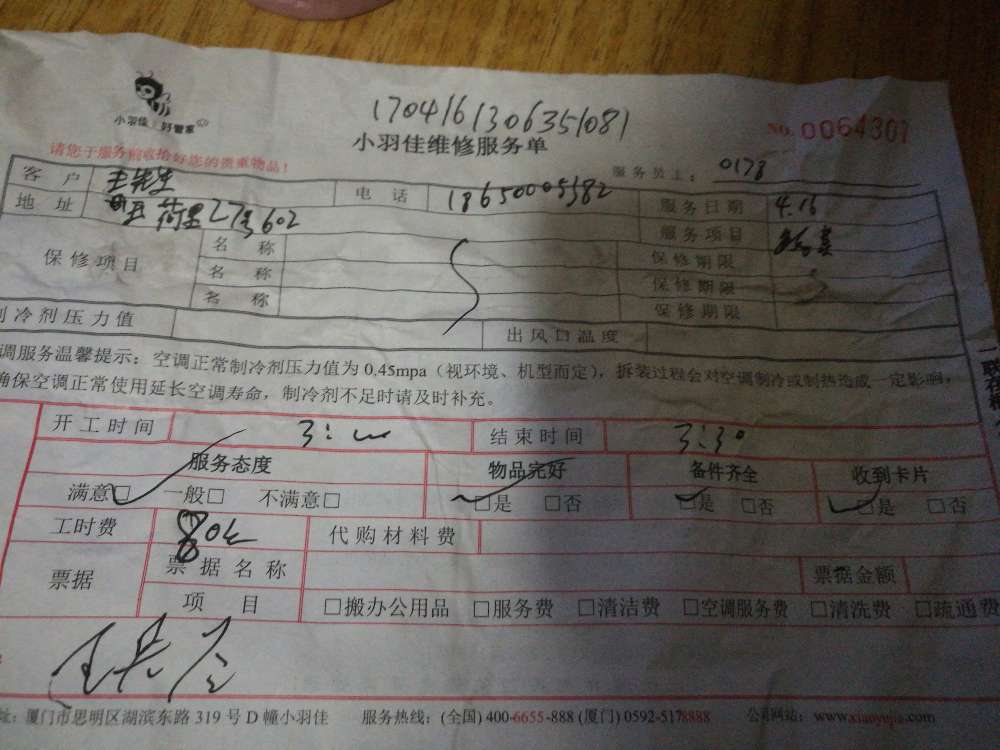 小羽佳 好管家
1704161306351081
小羽佳维修服务单
NO. 0064301
请您于服务前收拾好您的贵重物品！
服务员工： 0178
客 户 王先生 电 话 18650005382 服务日期 4.16
地 址 27号602 服务项目
保修项目 名 称 保修期限
名 称 保修期限
名 称 保修期限
制冷剂压力值 出风口温度
调服务温馨提示：空调正常制冷剂压力值为 0.45mpa（视环境、机型而定），拆装过程会对空调制冷或制热造成一定影响，
确保空调正常使用延长空调寿命，制冷剂不足时请及时补充。
开工时间 结束时间 3:30
服务态度 物品完好 备件齐全 收到卡片
满意□ 一般□ 不满意□ □是 □否 □是 □否 □是 □否
工时费 80元 代购材料费
票据 票据名称 票据金额
项 目 □搬办公用品 □服务费 □清洁费 □空调服务费 □清洗费 □疏通费
址：厦门市思明区湖滨东路 319 号 D 幢小羽佳 服务热线：(全国) 400-6655-888 (厦门) 0592-5178888 公司网站：www.xiaoyujia.com